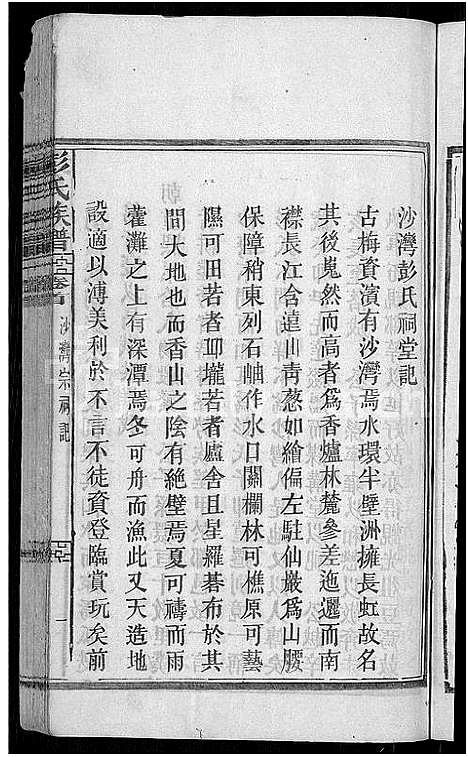 沙灣彭氏祠堂記
古梅資濱有沙灣焉水環半壁洲擁長虹故名
其後嵬然而高者為香爐林麓參差迤邐而南
襟長江含遠山青葱如繪偏左駐仙巖為山腰
保障稍東列石岫作水口關欄林可樵原可藝
隰可田若者邱壠若者廬舍且星羅碁布於其
間大地也而香山之陰有絕壁焉夏可禱而雨
藿灘之上有深潭焉冬可舟而漁此又天造地
設適以溥美利於不言不徒資登臨賞玩矣前
彭氏族譜
卷首
沙灣宗祠記
一